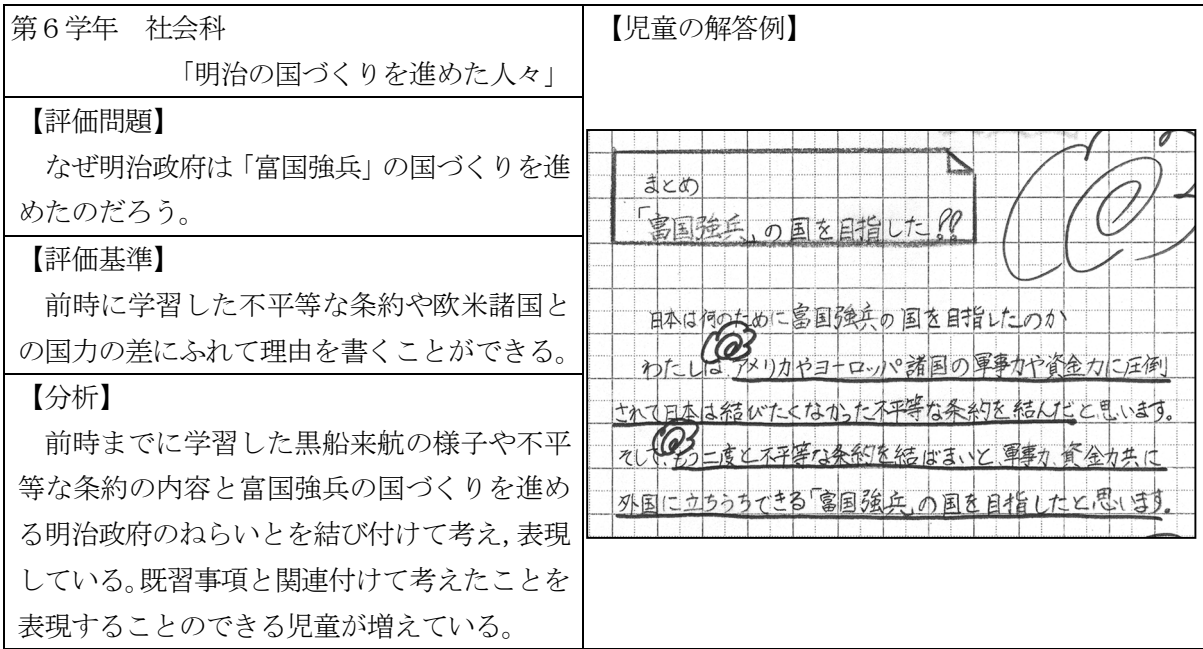 第6学年　社会科
「明治の国づくりを進めた人々」
【評価問題】
なぜ明治政府は「富国強兵」の国づくりを進
めたのだろう。
【評価基準】
前時に学習した不平等な条約や欧米諸国と
の国力の差にふれて理由を書くことができる。
【分析】
前時までに学習した黒船来航の様子や不平
等な条約の内容と富国強兵の国づくりを進め
る明治政府のねらいとを結び付けて考え,表現
している。既習事項と関連付けて考えたことを
表現することのできる児童が増えている。
【児童の解答例】
まとめ
「富国強兵」の国を目指した⁇
日本は何のために富国強兵の国を目指したのか
わたしは、アメリカやヨーロッパ諸国の軍事力や資金力に圧倒
されて日本は結びたくなかった不平等な条約を結んだと思います。
そして、もう二度と不平等な条約を結ばまいと、軍事力、資金力共に
外国に立ちうちできる「富国強兵」の国を目指したと思います。